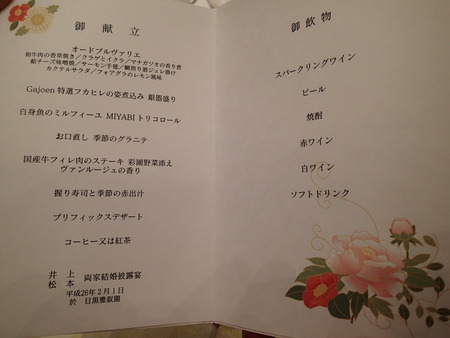 御献立
オードブルヴァリエ
和牛肉の香草焼き／クラゲとイクラ／マナガツオの香り煮
鮭チーズ味噌焼／サーモン手毬／鯛煎り酒ジェレ掛け
カクテルサラダ／フォアグラのレモン風味
Gajoen 特選フカヒレの姿煮込み 銀器盛り
白身魚のミルフィーユ MIYABIトリコロール
お口直し 季節のグラニテ
国産牛フィレ肉のステーキ 彩園野菜添え
ヴァンルージュの香り
握り寿司と季節の赤出汁
プリフィックスデザート
コーヒー又は紅茶
井上
松本
両家結婚披露宴
平成26年2月1日
於 目黒雅叙園
御飲物
スパークリングワイン
ビール
焼酎
赤ワイン
白ワイン
ソフトドリンク